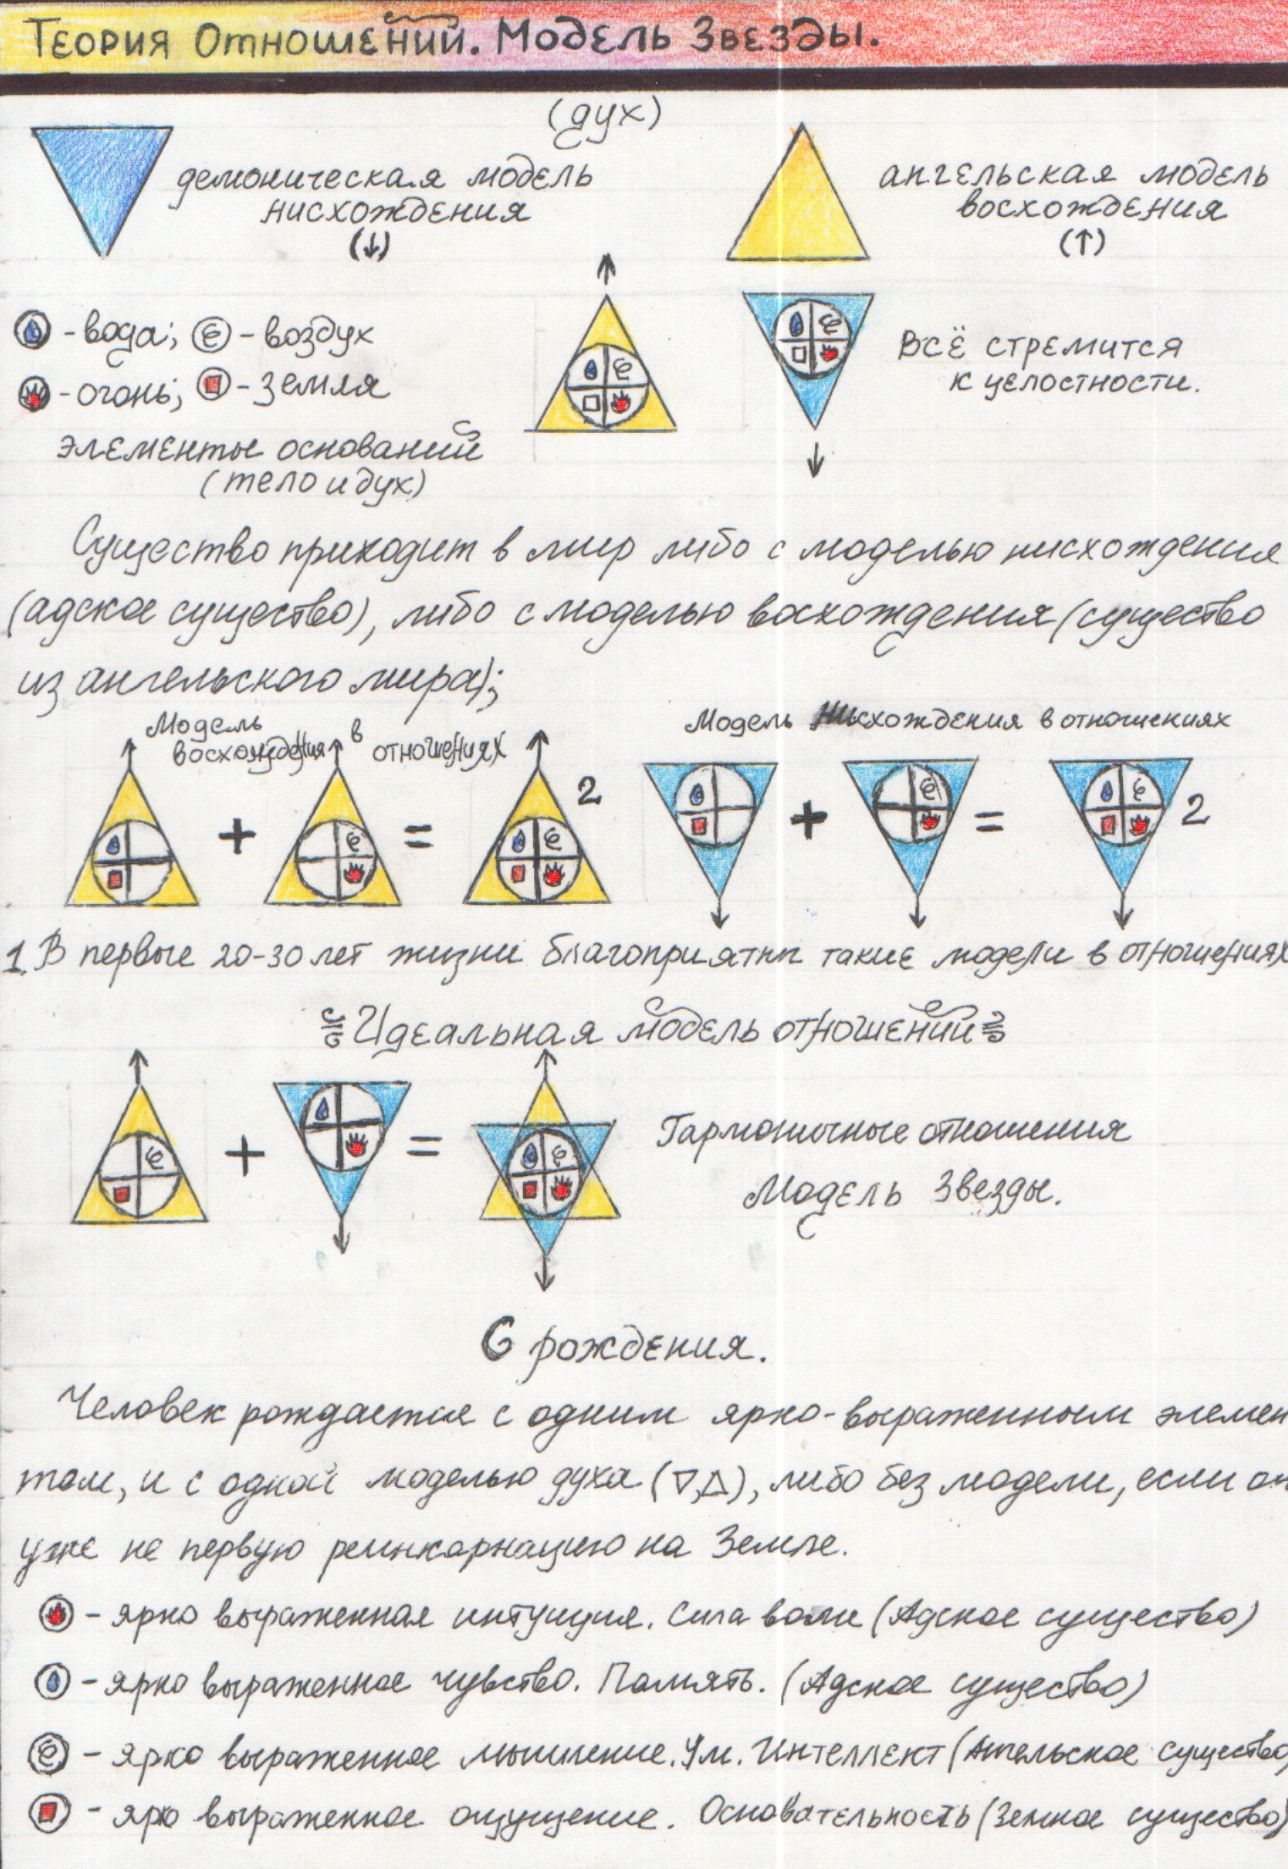 Теория Отношений. Модель Звезды.
(дух)
демоническая модель
нисхождения
(↓)
ангельская модель
восхождения
(↑)
- вода; - воздух
- огонь; - земля
элементы оснований
(тело и дух)
Всё стремится
к целостности.
Существо приходит в мир либо с моделью нисхождения
(адское существо), либо с моделью восхождения (существо
из ангельского мира);
Модель восхождения в отношениях
Модель нисхождения в отношениях
+ = 2
+ = 2
1. В первые 20-30 лет жизни благоприятны такие модели в отношениях
Идеальная модель отношений
+ =
Гармоничные отношения
Модель Звезды.
С рождения.
Человек рождается с одним ярко-выраженным элемен
том, и с одной моделью духа (▽,△), либо без модели, если он
уже не первую реинкарнацию на Земле.
- ярко выраженная интуиция. Сила воли (Адское существо)
- ярко выраженное чувство. Память. (Адское существо)
- ярко выраженное мышление. Ум. Интеллект (Ангельское существо)
- ярко выраженное ощущение. Основательность (Земное существо)